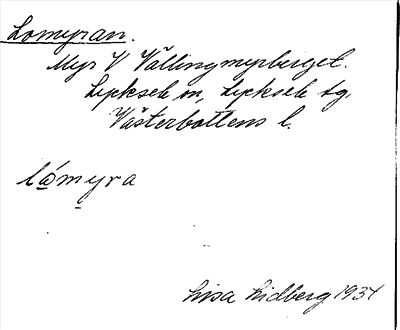 Lomyran.
Myr V Vällingmyrberget.
Lycksele sn, Lycksele tg,
Västerbottens l.
lómyra
Lisa Lidberg 1934